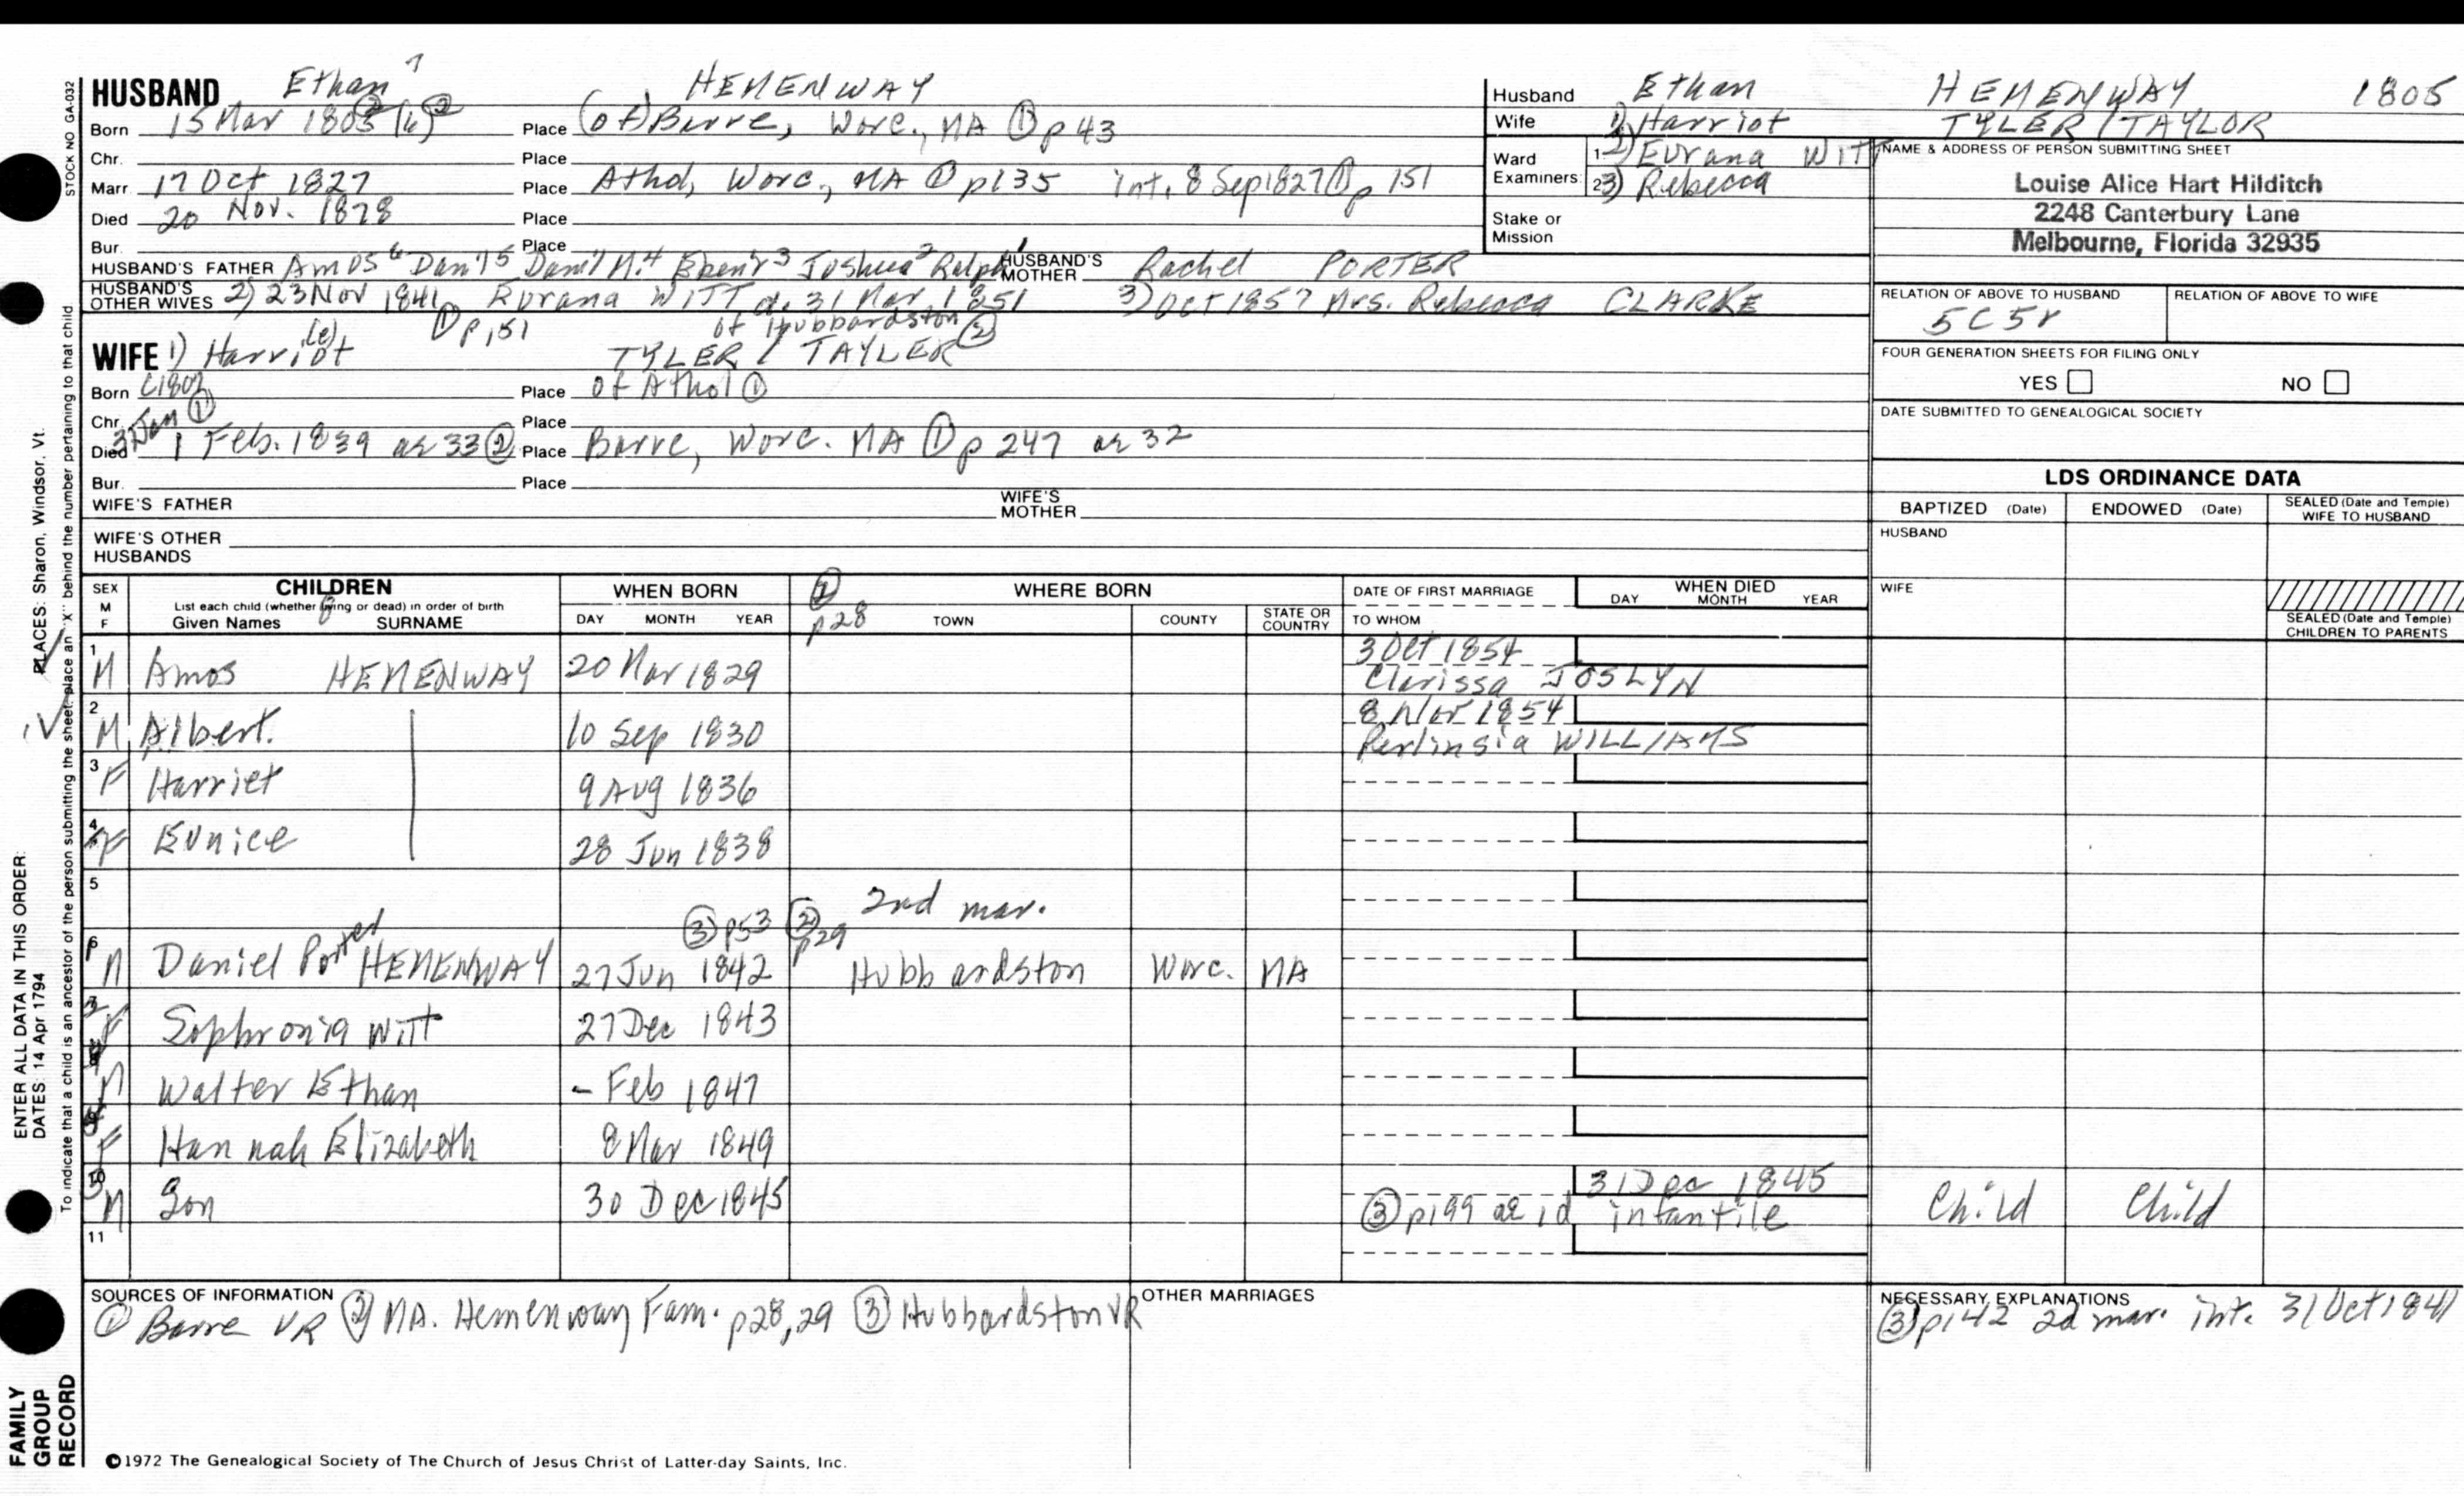 HUSBAND Ethan 7 HEMENWAY
Born 15 Mar 1805 (6) ② Place (of) Barre, Worc., MA ① p 43
Chr. Place
Marr. 17 Oct 1827 Place Athol, Worc., MA ① p135 int. 8 Sep 1827 ① p 151
Died 20 Nov. 1878 Place
Bur. Place
HUSBAND'S FATHER Amos 6 Dan'l 5 Dan'l M. 4 Eben'r 3 Joshua 2 Ralph 1 HUSBAND'S MOTHER Rachel PORTER
HUSBAND'S OTHER WIVES 2) 23 Nov 1841 Eurana WITT d. 31 Mar 1851 3) Oct 1857 Mrs. Rebecca CLARKE
① p 151 of Hubbardston ②
WIFE 1) Harriot (e) TYLER / TAYLER
Born C1807 Place of Athol ①
Chr. Place
3 Jan ①
Died 1 Feb. 1839 ae 33 ② Place Barre, Worc. MA ① p 247 ae 32
Bur. Place
WIFE'S FATHER WIFE'S MOTHER
WIFE'S OTHER HUSBANDS
Husband Ethan HEMENWAY 1805
Wife 1) Harriot TYLER / TAYLOR
Ward Examiners: 1. 2) Eurana WITT
2. 3) Rebecca
Stake or Mission
NAME & ADDRESS OF PERSON SUBMITTING SHEET
Louise Alice Hart Hilditch
2248 Canterbury Lane
Melbourne, Florida 32935
RELATION OF ABOVE TO HUSBAND RELATION OF ABOVE TO WIFE
5C5r
FOUR GENERATION SHEETS FOR FILING ONLY
YES NO
DATE SUBMITTED TO GENEALOGICAL SOCIETY
LDS ORDINANCE DATA
BAPTIZED (Date) ENDOWED (Date) SEALED (Date and Temple) WIFE TO HUSBAND
HUSBAND
WIFE
SEALED (Date and Temple) CHILDREN TO PARENTS
SEX M F CHILDREN WHEN BORN ① p28 WHERE BORN DATE OF FIRST MARRIAGE WHEN DIED
List each child (whether living or dead) in order of birth
Given Names SURNAME DAY MONTH YEAR TOWN COUNTY STATE OR COUNTRY TO WHOM DAY MONTH YEAR
1 M Amos HEMENWAY 20 Mar 1829 3 Oct 1854
Clarissa JOSLYN
2 M Albert 10 Sep 1830 8 Nov 1854
Perlinsia WILLIAMS
3 F Harriet 9 Aug 1836
4 F Eunice 28 Jun 1838
5 2nd mar.
③ p53 ② p29
6 M Daniel Porter HEMENWAY 27 Jun 1842 Hubbardston Worc. MA
F Sophronia Witt 27 Dec 1843
M Walter Ethan - Feb 1847
F Hannah Elizabeth 8 Mar 1849
10 M Son 30 Dec 1845 31 Dec 1845
③ p199 ae 1d infantile Child Child
11
SOURCES OF INFORMATION
① Barre VR ② MA. Hemenway Fam. p28,29 ③ Hubbardston VR
OTHER MARRIAGES
NECESSARY EXPLANATIONS
③ p142 2d mar. int. 31 Oct 1841
©1972 The Genealogical Society of The Church of Jesus Christ of Latter-day Saints, Inc.
STOCK NO GA-032
To indicate that a child is an ancestor of the person submitting the sheet, place an "X" behind the number pertaining to that child
PLACES: Sharon, Windsor, Vt.
ENTER ALL DATA IN THIS ORDER:
DATES: 14 Apr 1794
FAMILY
GROUP
RECORD